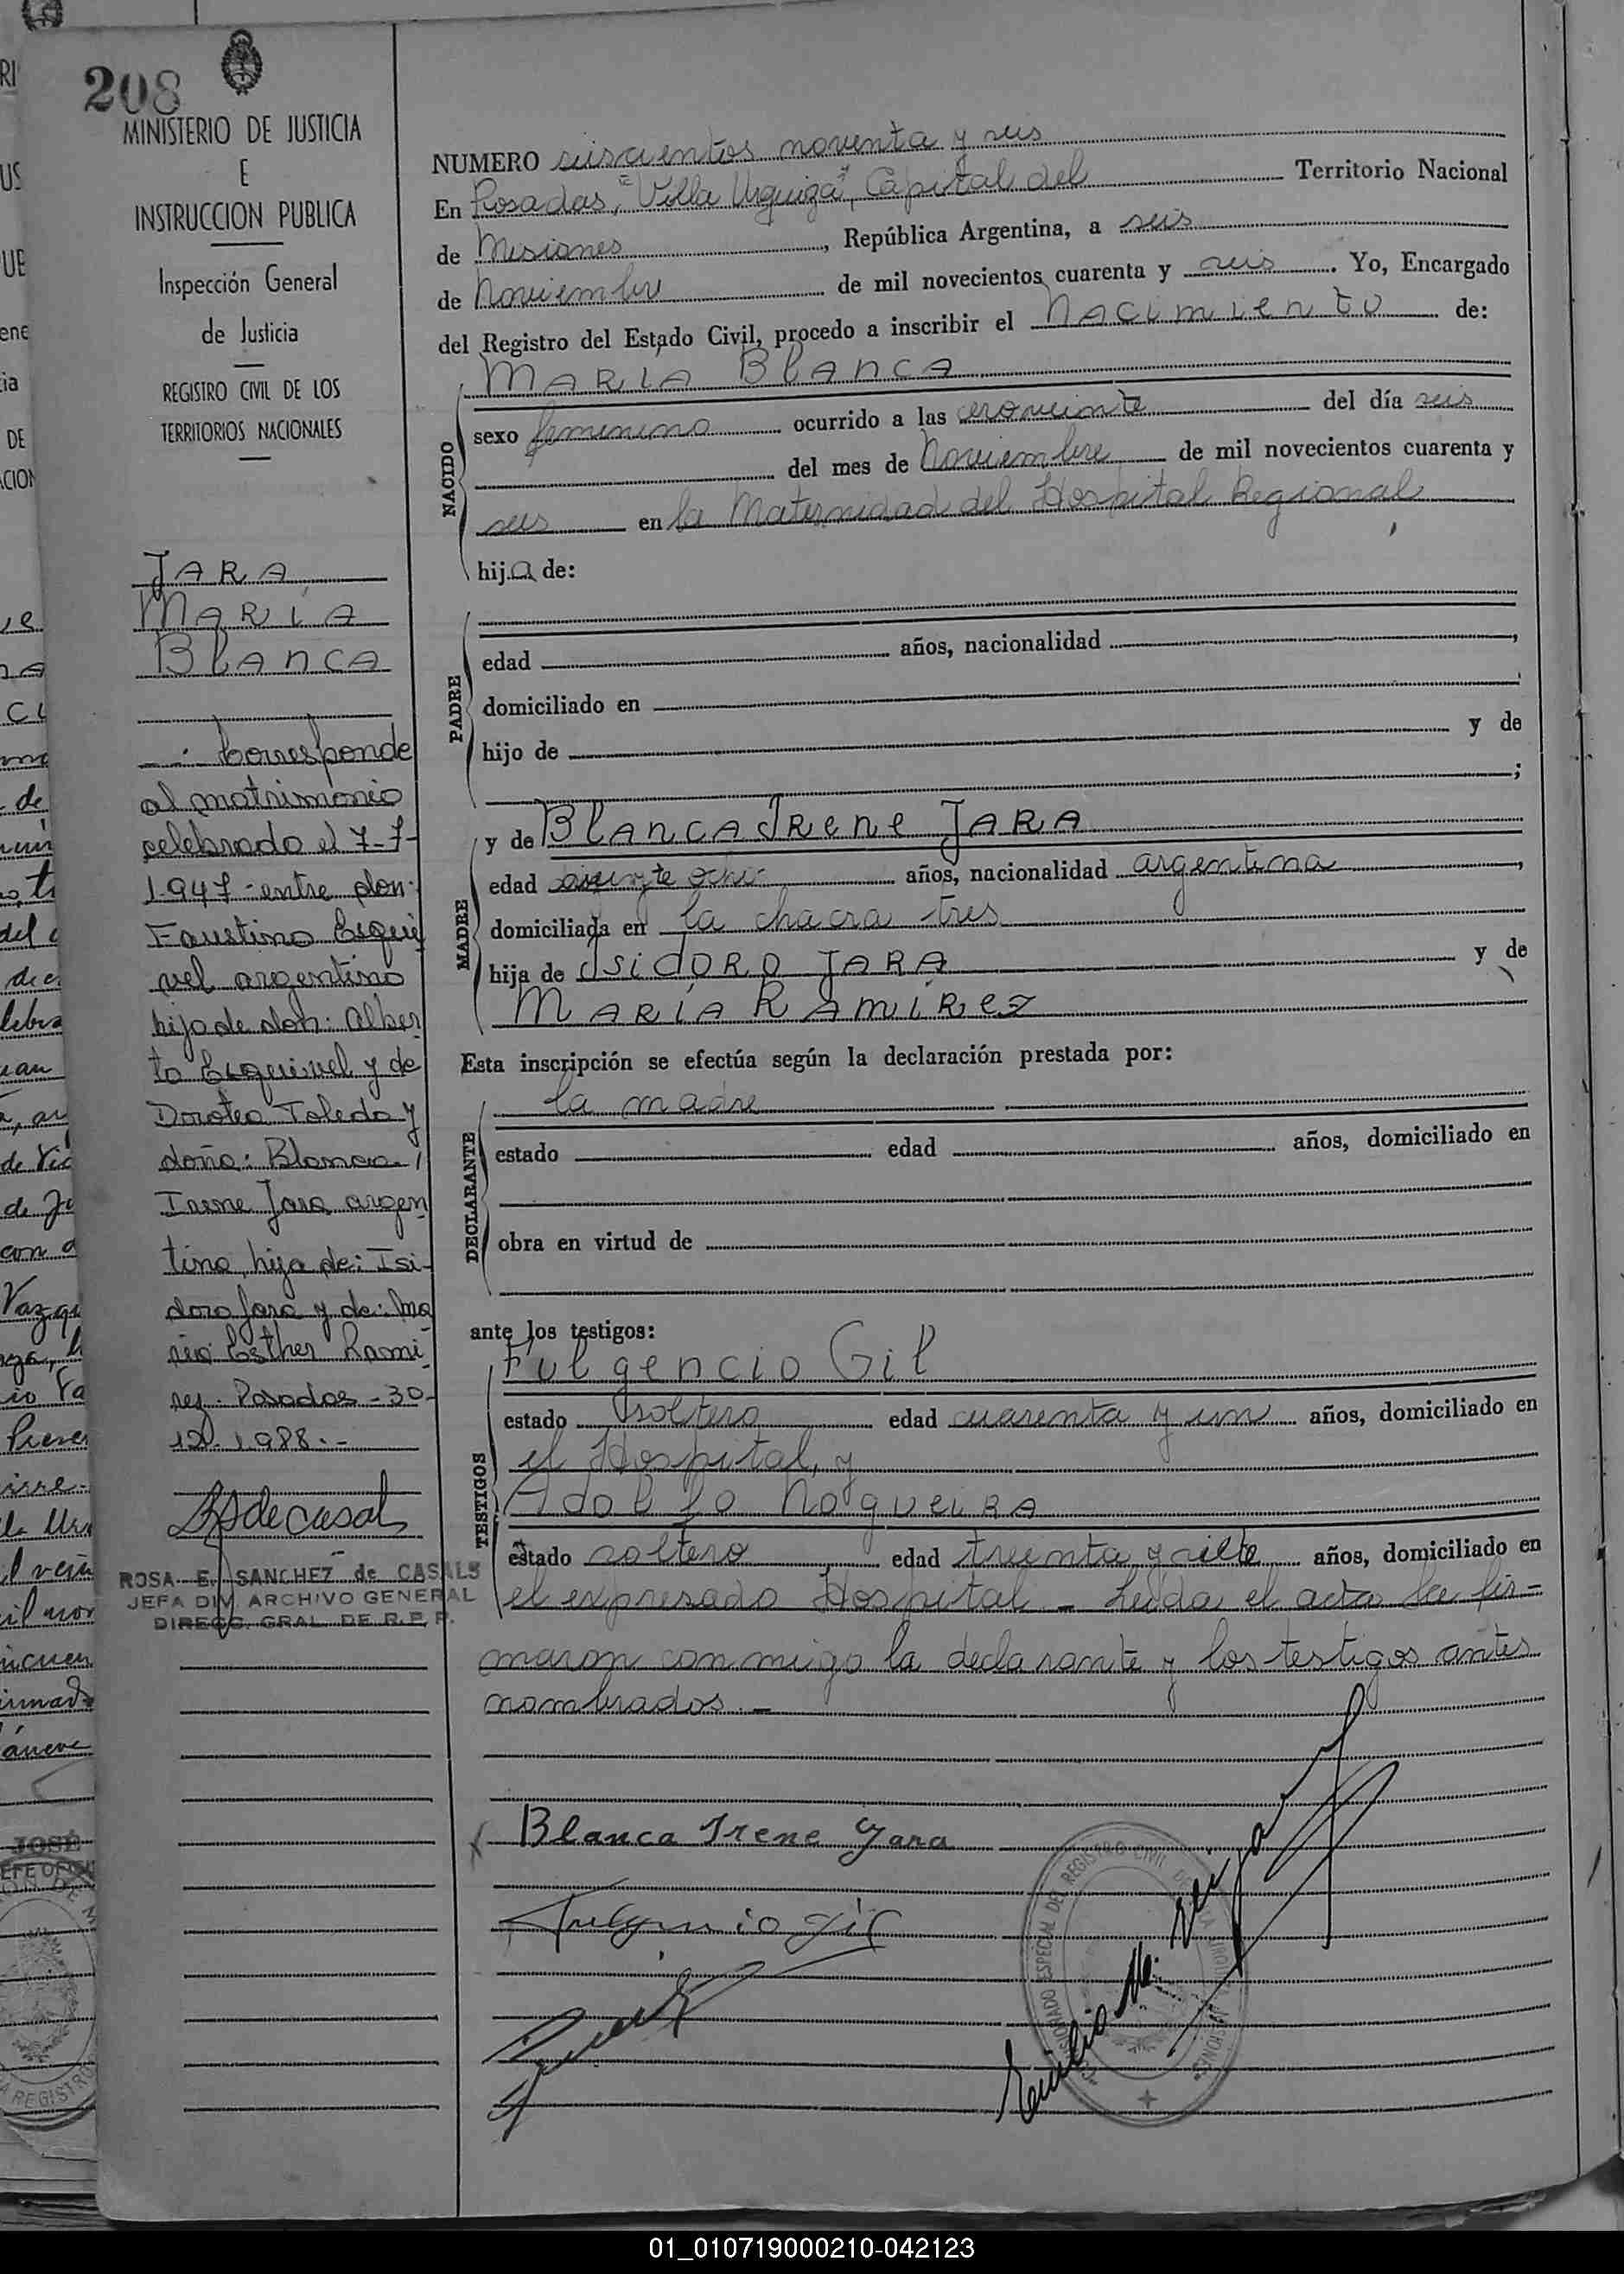 208
MINISTERIO DE JUSTICIA
E
INSTRUCCION PUBLICA
Inspección General
de Justicia
REGISTRO CIVIL DE LOS
TERRITORIOS NACIONALES
JARA
MARÍA
BLANCA
Corresponde
al matrimonio
celebrado el 7-7-
1.947 - entre don:
Faustino Esqui
vel argentino
hijo de don: Alber
to Esquivel y de
Dorotea Toledo y
doña: Blanca
Irene Jara, argen
tina, hija de: Isi-
doro Jara y de: Ma
ria Esther Rami
rez. Posadas - 30-
12-1.988.-
ROSA E. SANCHEZ de CASALS
JEFA DIV. ARCHIVO GENERAL
DIRECC. GRAL. DE R.P.P.
NUMERO seiscientos noventa y seis
En Posadas, "Villa Urquiza", Capital del Territorio Nacional
de Misiones, República Argentina, a seis
de Noviembre de mil novecientos cuarenta y seis. Yo, Encargado
del Registro del Estado Civil, procedo a inscribir el nacimiento de:
MARIA BLANCA
NACIDO
sexo femenino ocurrido a las ceroveinte del día seis
del mes de Noviembre de mil novecientos cuarenta y
seis en la Maternidad del Hospital Regional,
hija de:
PADRE
edad años, nacionalidad ,
domiciliado en ,
hijo de y de
;
MADRE
y de BLANCA IRENE JARA
edad veinte ocho años, nacionalidad argentina,
domiciliada en la chacra tres
hija de ISIDORO JARA y de
MARÍA RAMÍREZ
Esta inscripción se efectúa según la declaración prestada por:
DECLARANTE
la madre
estado edad años, domiciliado en
obra en virtud de
ante los testigos:
TESTIGOS
Fulgencio Gil
estado soltero edad cuarenta y un años, domiciliado en
el Hospital, y
Adolfo Nogueira
estado soltero edad treinta y siete años, domiciliado en
el expresado Hospital - Leída el acta la fir-
maron conmigo la declarante y los testigos antes
nombrados.-
Blanca Irene Jara
Fulgencio Gil
REGISTRO CIVIL
01_010719000210-042123